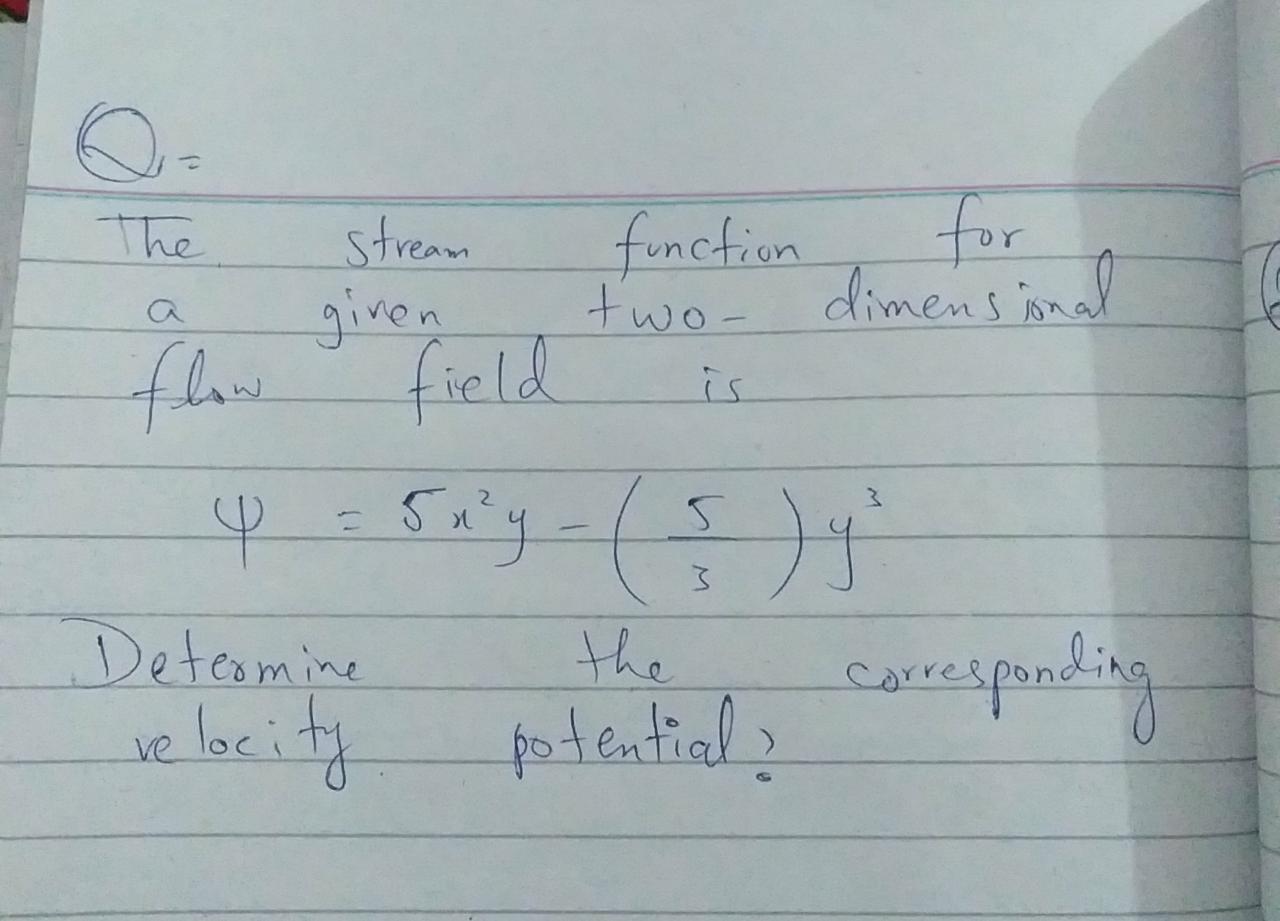 Q.=
The stream function for
a given two- dimensional
flow field is
ψ = 5x²y - (5/3) y³
Determine the corresponding
velocity potential?